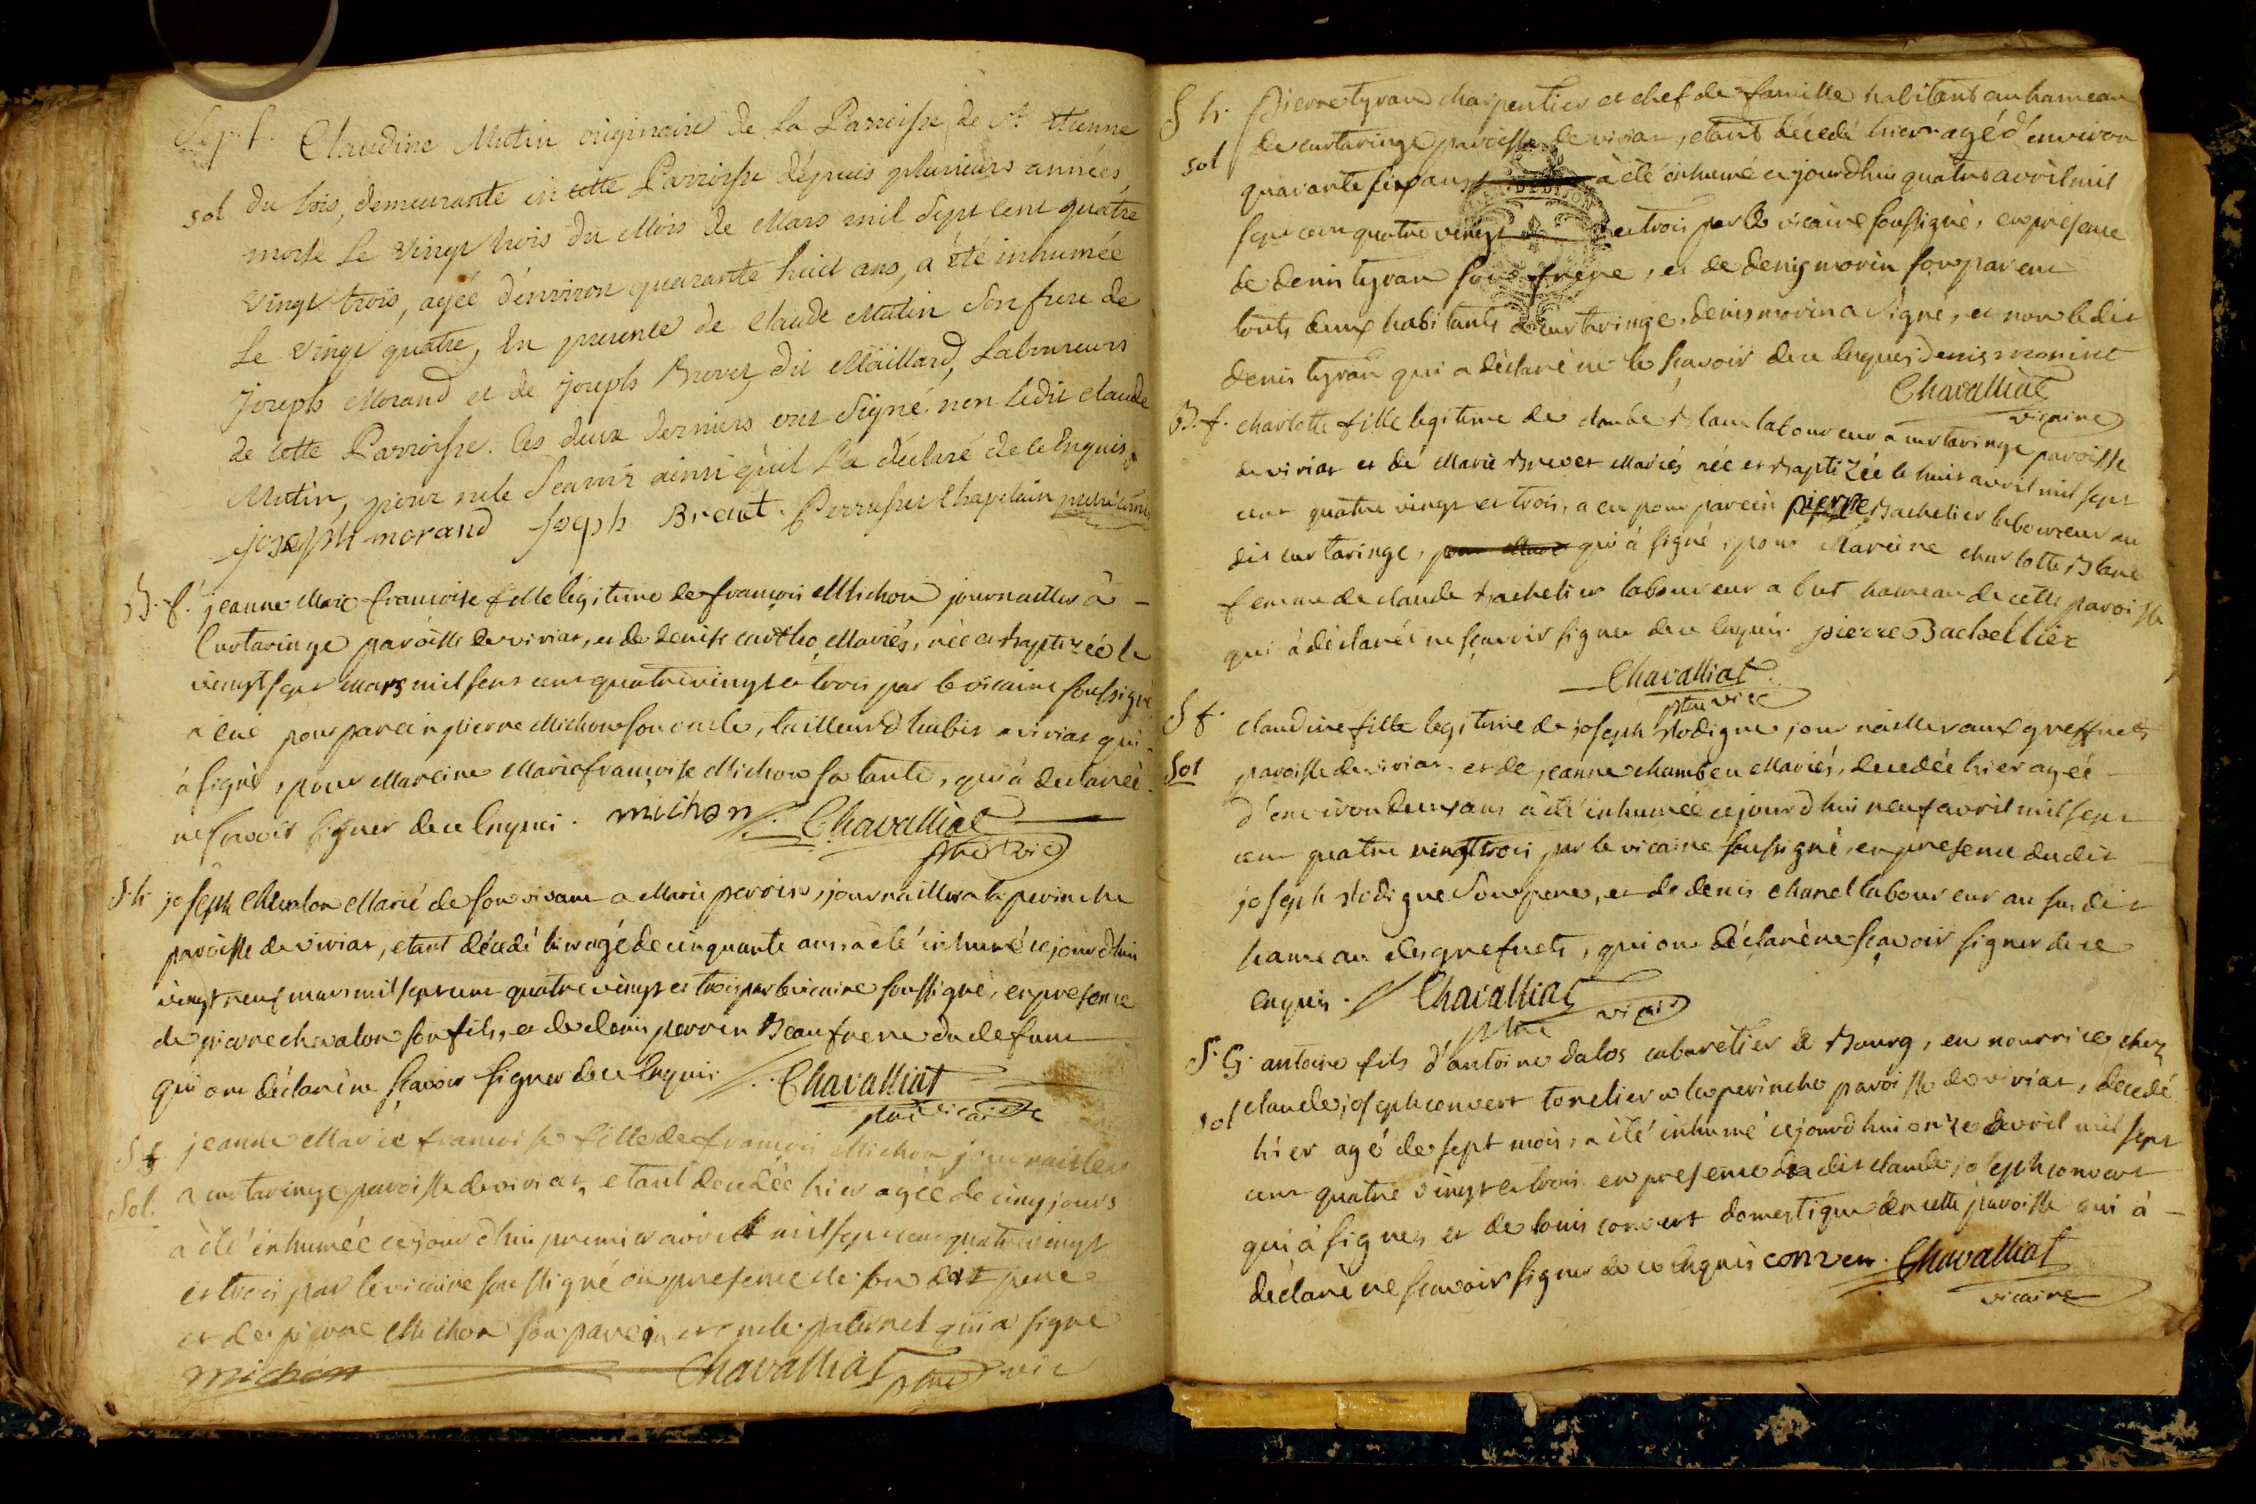 Sep. f. Claudine Mutin originaire de la Parroisse de St Etienne
sol du bois, demeurante en cette Parroisse dépuis plusieurs années,
morte le vingt trois du Mois de Mars mil Sept Cent quatre
vingt trois, agée d'environ quarante huit ans, a été inhumée
Le vingt quatre, En presence de Claude Mutin Son frere de
Joseph Morand et de Joseph Brevet dit Maillard, Laboureurs
de cette Parroisse. Ces deux derniers ont Signé non ledit claude
Mutin, pour ne le Scavoir ainsi qu'il l'a déclaré de ce Enquis
joseph morand Joseph Brevet. Chapelain
B. f. jeanne Marie francoise fille légitime de françois Michon journaillier à
Curtaringe paroisse de viriat, et de denise Mariés, née et baptizée le
vingt sept mars mil sept cent quatre vingt et trois par le vicaire soussigné
a eue pour parein pierre Michon son oncle, tailleur d'habit a viriat qui
à signé, pour Mareine Marie françoise Michon sa tante, qui à declarée
ne sçavoir signer de ce Enquei. michon Chavalliat
ptre vic
S h joseph Chevalon Marié de son vivant a Marie perrin, journaillier a la perinche
paroisse de viriat, etant décedé hier agé de cinquante ans a été inhumé ce jourd'hui
vingt neuf mars mil sept cent quatre vingt et trois par le vicaire soussigné, en presence
de pierre chevalon son fils, et de denis perrin Beaufrere du defunt
qui ont déclaré ne sçavoir signer de ce Enquis. Chavalliat
ptre vicaire
S f jeanne Marie françoise fille de françois Michon journaillier
Sol. a curtaringe paroisse de viriat, etant decedée hier agée de cinq jours
à été inhumée ce jour d'hui premier avril mil sept cent quatre vingt
et trois par le vicaire soussigné en presence de son dit pere
et de pierre Michon son parein et oncle paternel qui a signé
michon Chavalliat ptre vic
S h. Pierre tyran charpentier et chef de famille habitant au hameau
de curtaringe paroisse de viriat, etant décedé hier agé d'environ
sol quarante six ans à été inhumé ce jourdhui quatre avril mil
sept cent quatre vingt et trois par le vicaire soussigné, en presence
de denis tyran son frere, et de denis morin son parent
touts deux habitants a curtaringe, denis morin a signé, et non ledit
denis tyran qui a déclaré ne le sçavoir de ce Enquei denis morin
Chavalliat
vicaire
B. f. charlotte fille legitime de claude Blanc laboureur a curtaringe paroisse
de viriat et de Marie Brevet Mariés née et Baptizée le huit avril mil sept
cent quatre vingt et trois, a eu pour parein pierre Bachelier laboureur au
dit curtaringe, qui à signé, pour Mareine charlotte Blanc
femme de claude Bachelier laboureur a hameau de cette paroisse
qui à déclaré ne sçavoir signer de ce Enquis. pierre Bachellier
Chavalliat
ptre vic
S f. claudine fille legitime de joseph Rodigue journaillier aux greffnets
Sol paroisse de viriat et de jeanne Mariés, decedée hier agée
d'environ deux ans à été inhumée ce jourd'hui neuf avril mil sept
cent quatre vingt trois par le vicaire soussigné, en presence dudit
joseph Rodigue Son pere, et de denis chanel laboureur au susdit
hameau des grefnets, qui ont déclaré ne sçavoir signer de ce
enquis. Chavalliat
ptre vicaire
S. G. antoine fils d'antoine dalos cabaretier a Bourg, en nourrice chez
Sol claude joseph convert tonelier a la perinche paroisse de viriat, decedé
hier agé de sept mois, a été inhumé ce jourd'hui onze avril mil sept
cent quatre vingt et trois en presence du dit claude joseph convert
qui à signer et de louis convert domestique en cette paroisse qui à
déclaré ne sçavoir signer de ce enquis conver. Chavalliat
vicaire